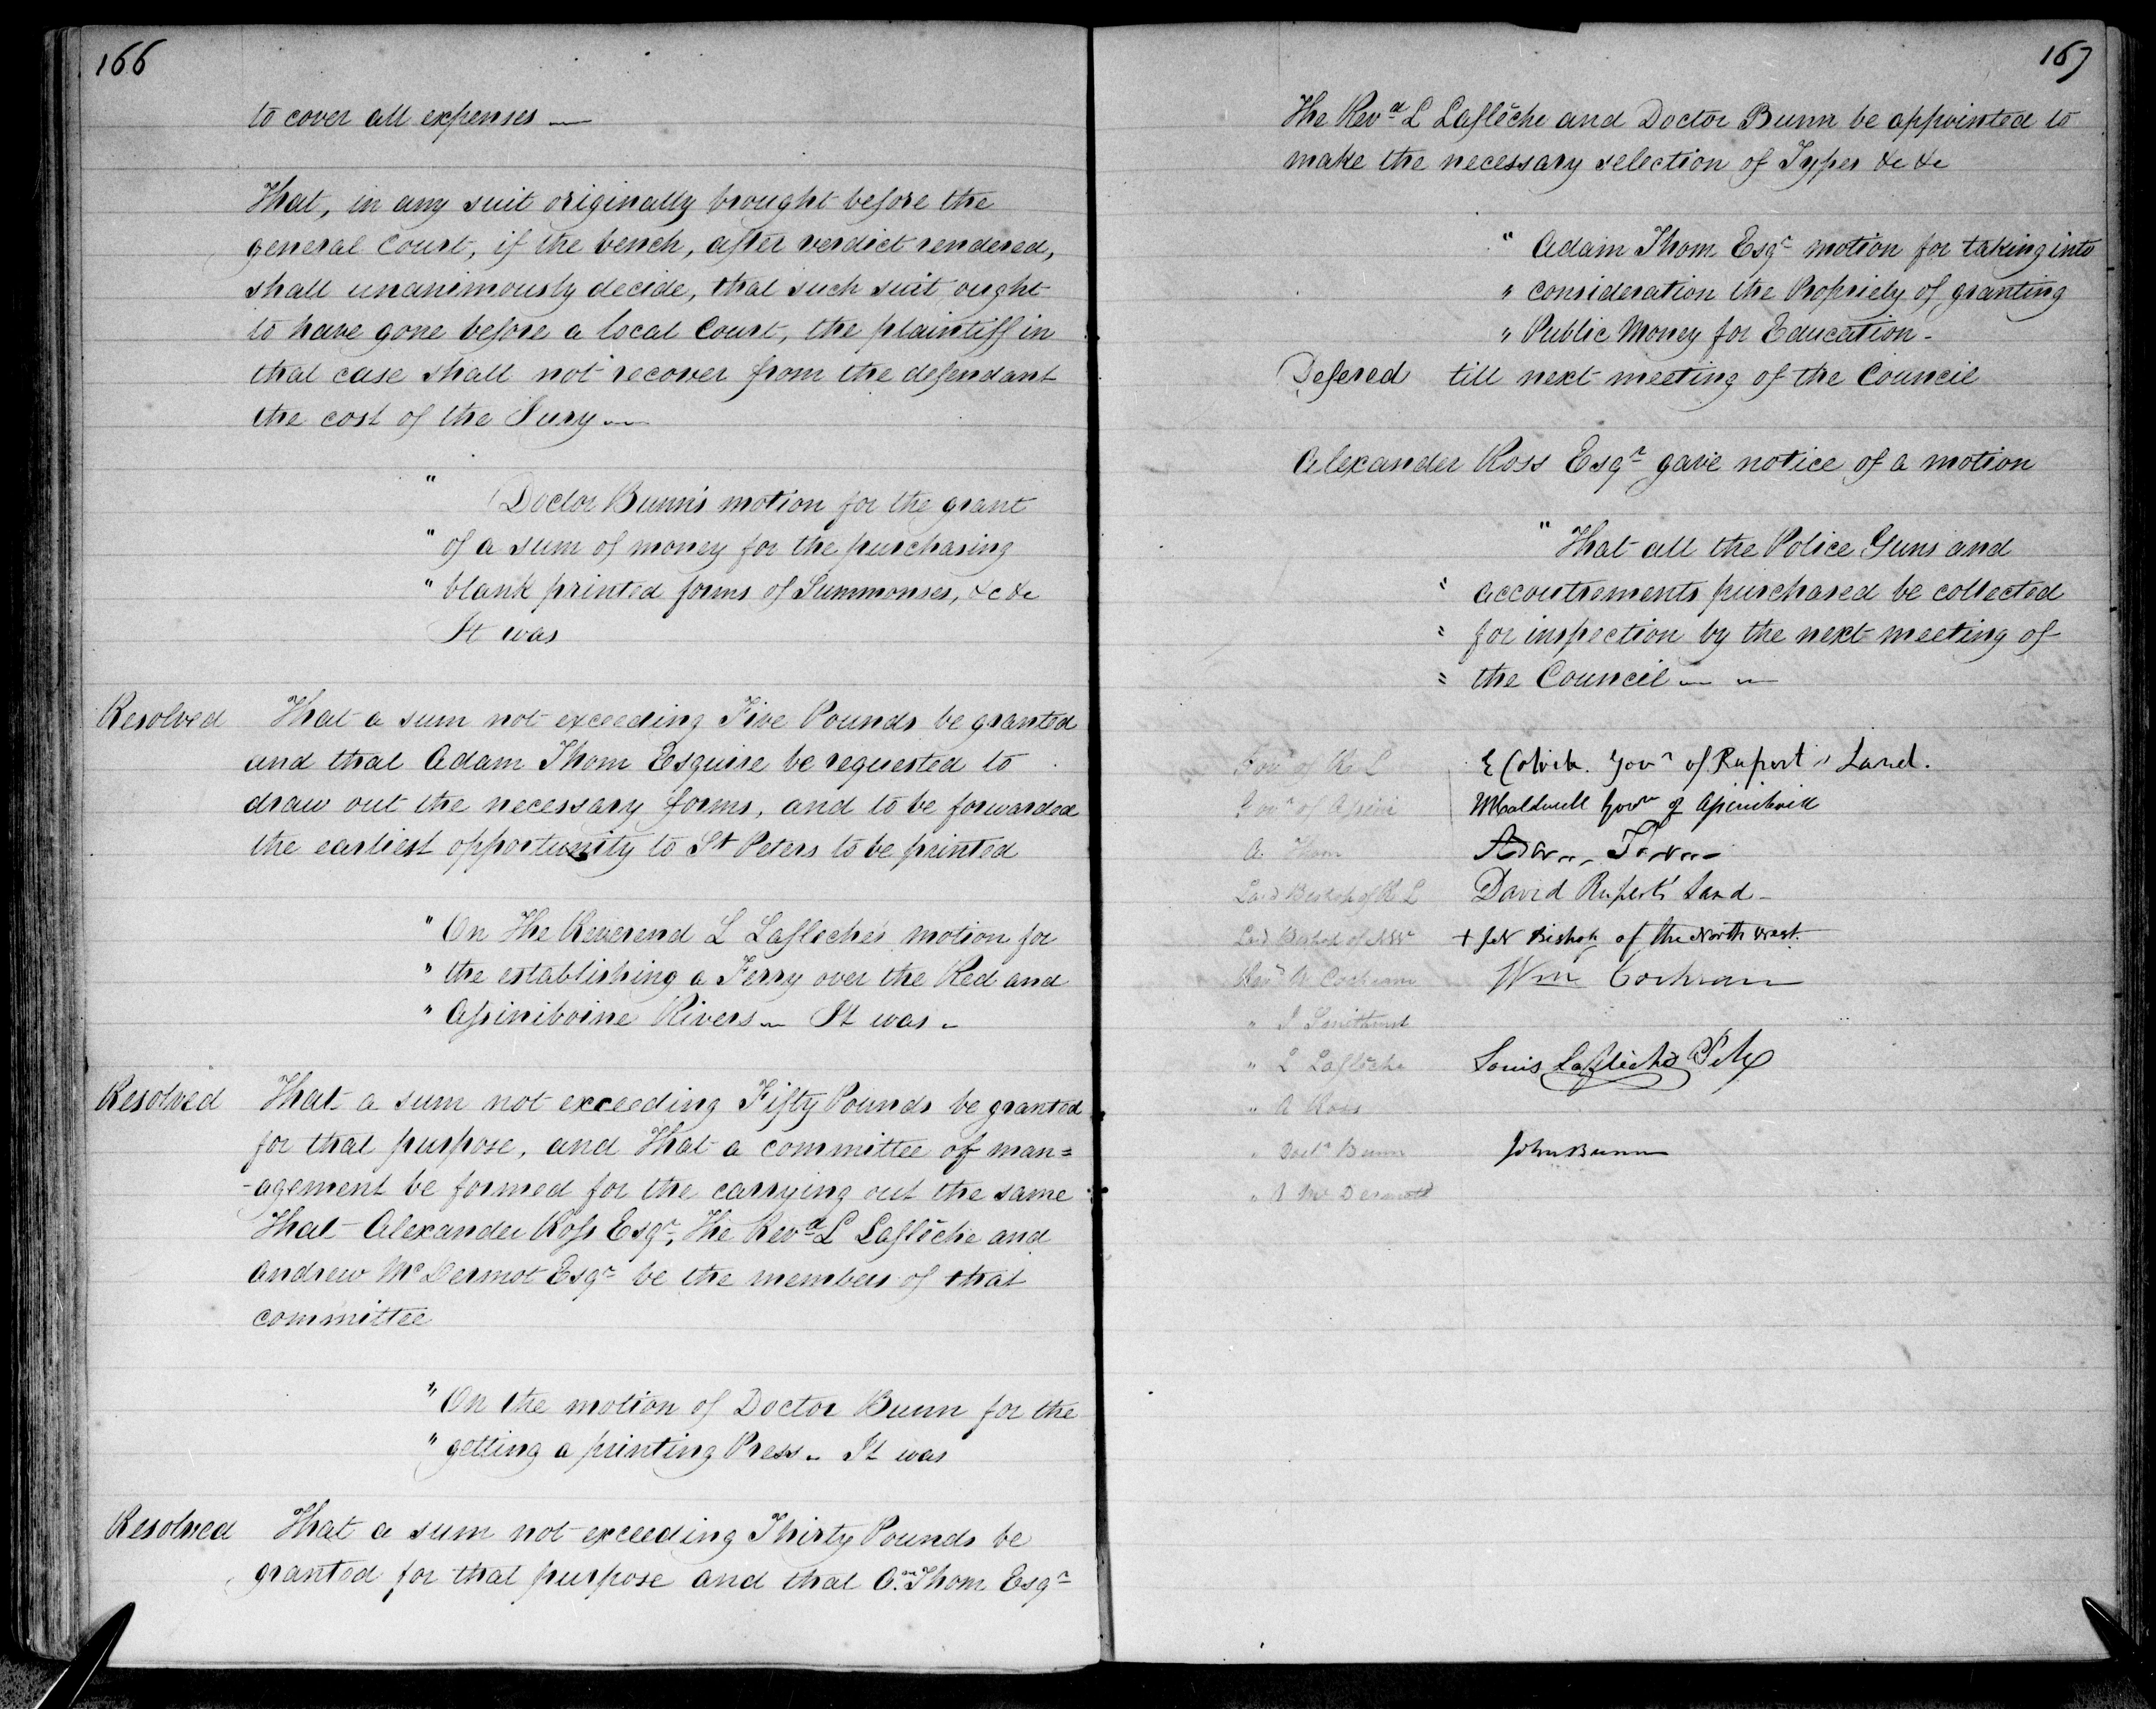 166
to cover all expenses —
That, in any suit originally brought before the
general Court, if the bench, after verdict rendered,
shall unanimously decide, that such suit ought
to have gone before a local Court, the plaintiff in
that case shall not recover from the defendant
the cost of the Jury —
" Doctor Bunn's motion for the grant
" of a sum of money for the purchasing
" blank printed forms of Summonses, &c &c
It was
Resolved That a sum not exceeding Five Pounds be granted
and that Adam Thom Esquire be requested to
draw out the necessary forms, and to be forwarded
the earliest opportunity to St Peters to be printed
" On The Reverend L Laflèche's motion for
" the establishing a Ferry over the Red and
" Assiniboine Rivers — It was —
Resolved That a sum not exceeding Fifty Pounds be granted
for that purpose, and That a committee of man=
-agement be formed for the carrying out the same
That Alexander Ross Esqr, The Revd L Laflèche and
Andrew McDermot Esqr be the members of that
committee
" On the motion of Doctor Bunn for the
" getting a printing Press — It was
Resolved That a sum not exceeding Thirty Pounds be
granted for that purpose and that A. Thom Esqr
167
The Revd L Laflèche and Doctor Bunn be appointed to
make the necessary selection of Types &c &c
" Adam Thom Esqr motion for taking into
" consideration the Propriety of granting
" Public Money for Education —
Defered till next meeting of the Council
Alexander Ross Esqr gave notice of a motion
" That all the Police Guns and
" accoutrements purchased be collected
" for inspection by the next meeting of
" the Council — —
Govr of R L E Colvile. Govr of Rupert's Land.
Govr of Assini W Caldwell Govr of Assiniboia
A. Thom Adam Thom
Lord Bishop of R L David Rupert's Land —
Lord Bishop of N W + J N Bishop of the North West.
Revd W Cochran Wm Cochran
" J Smithurst
" L Laflèche Louis Laflèche Ptre
" A Ross
" Doctr Bunn John Bunn
" A McDermott